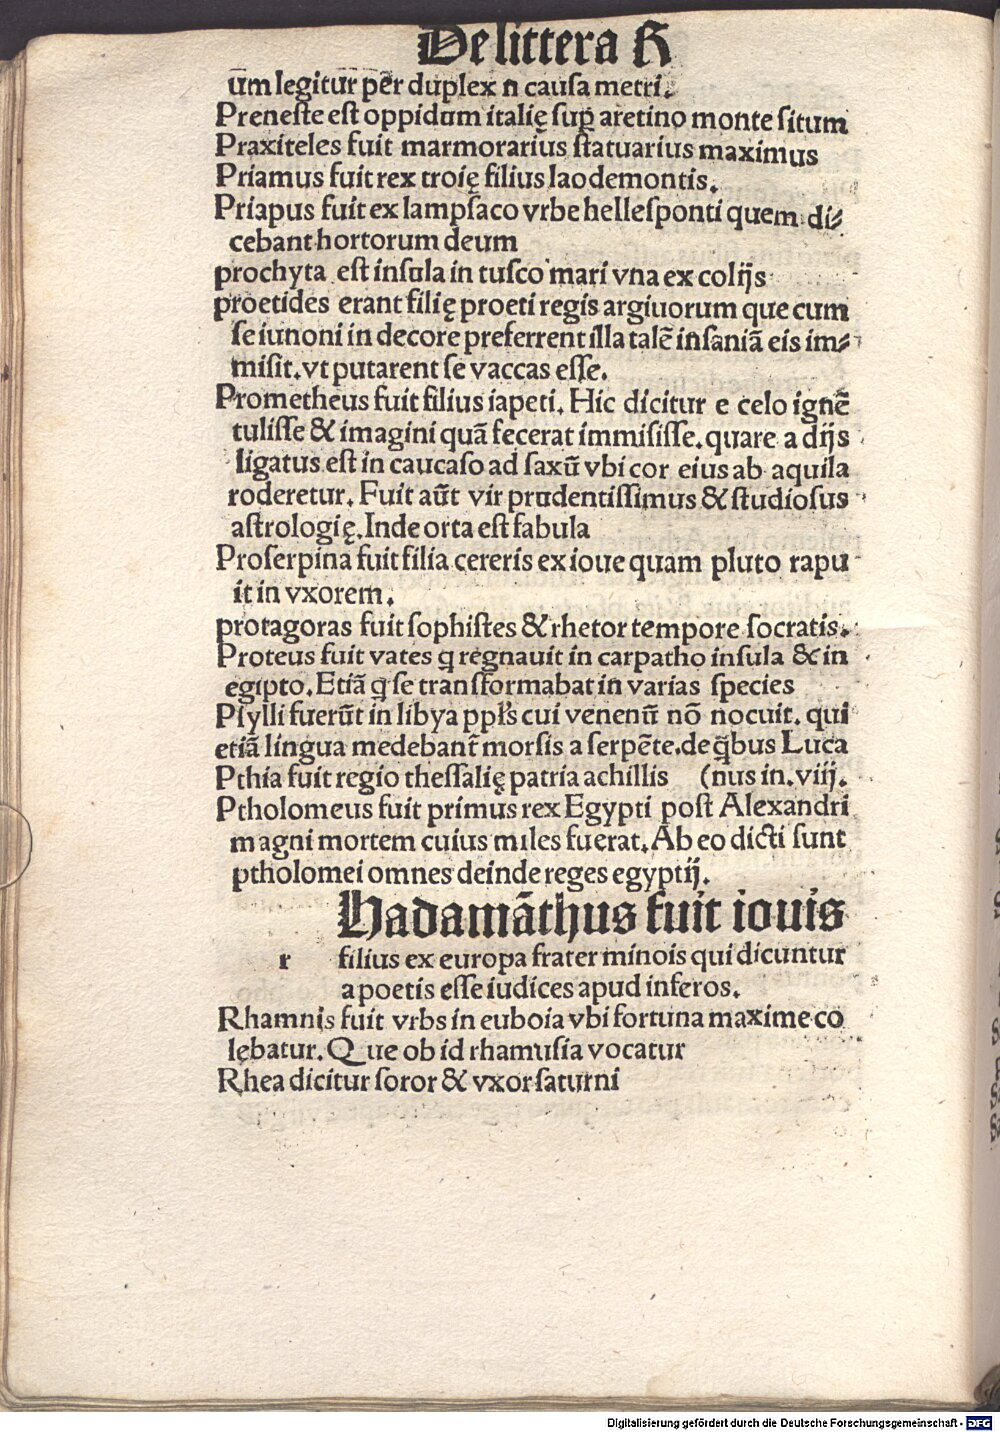 De littera R
um̄ legitur per̄ duplex n causa metri.
Preneste est oppidum italię sup̄ aretino monte situm
Praxiteles fuit marmorarius statuarius maximus
Priamus fuit rex troię filius laodemontis.
Priapus fuit ex lampsaco vrbe hellesponti quem di⸗
cebant hortorum deum
prochyta est insula in tusco mari vna ex colijs
proetides erant filię proeti regis argiuorum que cum
se iunoni in decore preferrent illa talē insaniā eis im⸗
misit. vt putarent se vaccas esse.
Prometheus fuit filius iapeti. Hic dicitur e celo ignē
tulisse & imagini quā fecerat immisisse. quare a dijs
ligatus est in caucaso ad saxū vbi cor eius ab aquila
roderetur. Fuit aūt vir prudentissimus & studiosus
astrologię. Inde orta est fabula
Proserpina fuit filia cereris ex ioue quam pluto rapu
it in vxorem.
protagoras fuit sophistes & rhetor tempore socratis.
Proteus fuit vates q̄ regnauit in carpatho insula & in
egipto. Etiā q̄ se transformabat in varias species
Psylli fuerūt in libya ppl's cui venenū nō nocuit. qui
etiā lingua medebant̄ morsis a serpēte. de q̄bus Luca
Pthia fuit regio thessalię patria achillis (nus in. viij.
Ptholomeus fuit primus rex Egypti post Alexandri
magni mortem cuius miles fuerat. Ab eo dicti sunt
ptholomei omnes deinde reges egyptij.
Hadamāthus fuit iouis
r filius ex europa frater minois qui dicuntur
a poetis esse iudices apud inferos.
Rhamnis fuit vrbs in euboia vbi fortuna maxime co
lębatur. Que ob id rhamusia vocatur
Rhea dicitur soror & vxor saturni
Digitalisierung gefördert durch die Deutsche Forschungsgemeinschaft - DFG